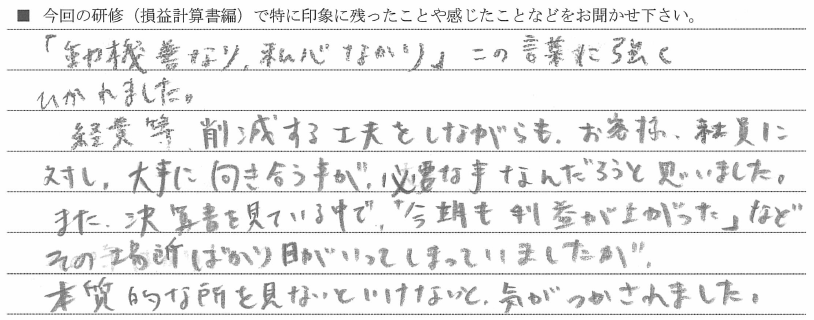 ■ 今回の研修（損益計算書編）で特に印象に残ったことや感じたことなどをお聞かせ下さい。
「動機善なり、私心なかり」この言葉に強く
ひかれました。
経費等、削減する工夫をしながらも、お客様、社員に
対し、大事に向き合う事が、必要な事なんだろうと思いました。
また、決算書を見ている中で、「今期も利益が上がった」など
その場所ばかり目がいってしまっていましたが、
本質的な所を見ないといけないと、気がつかされました。